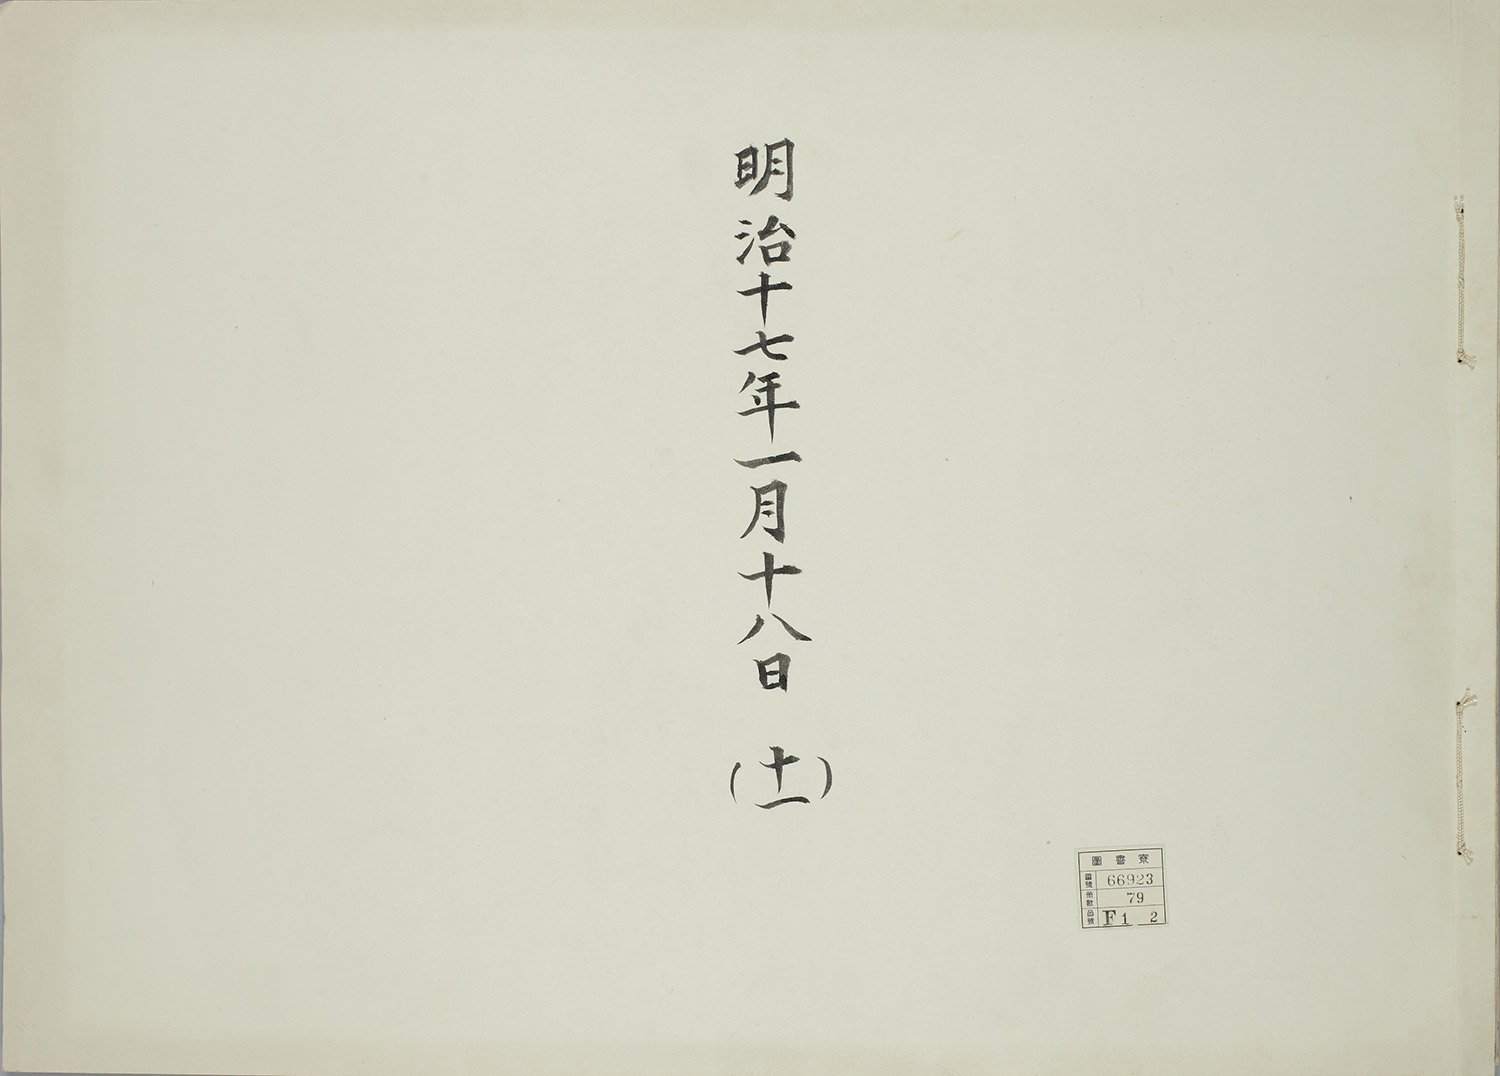 明治十七年一月十八日 (十一)
圖書寮
番號 66923
冊數 79
函號 F1 2